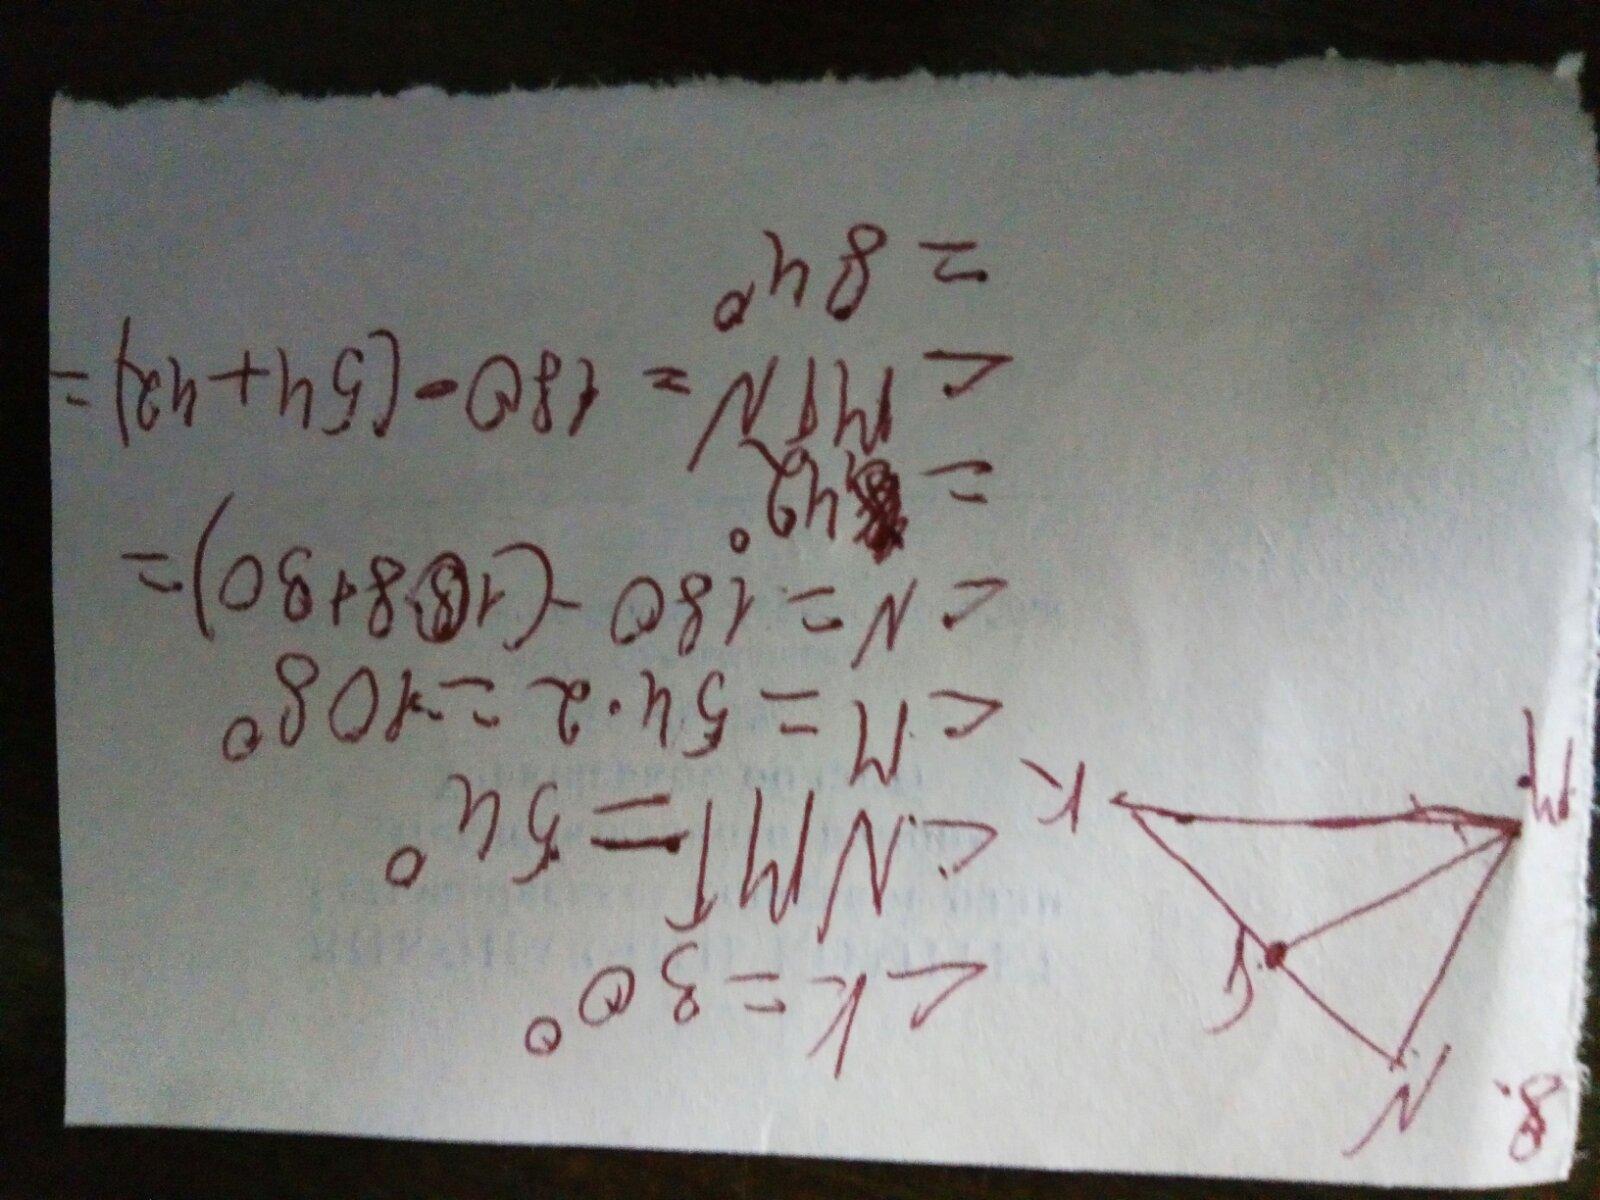 8.
N
T
M
K
<K=30°
<NMT=54°
<M=54·2=108°
<N=180-(108+30)=
=42°
<MTN=180-(54+42)=
=84°